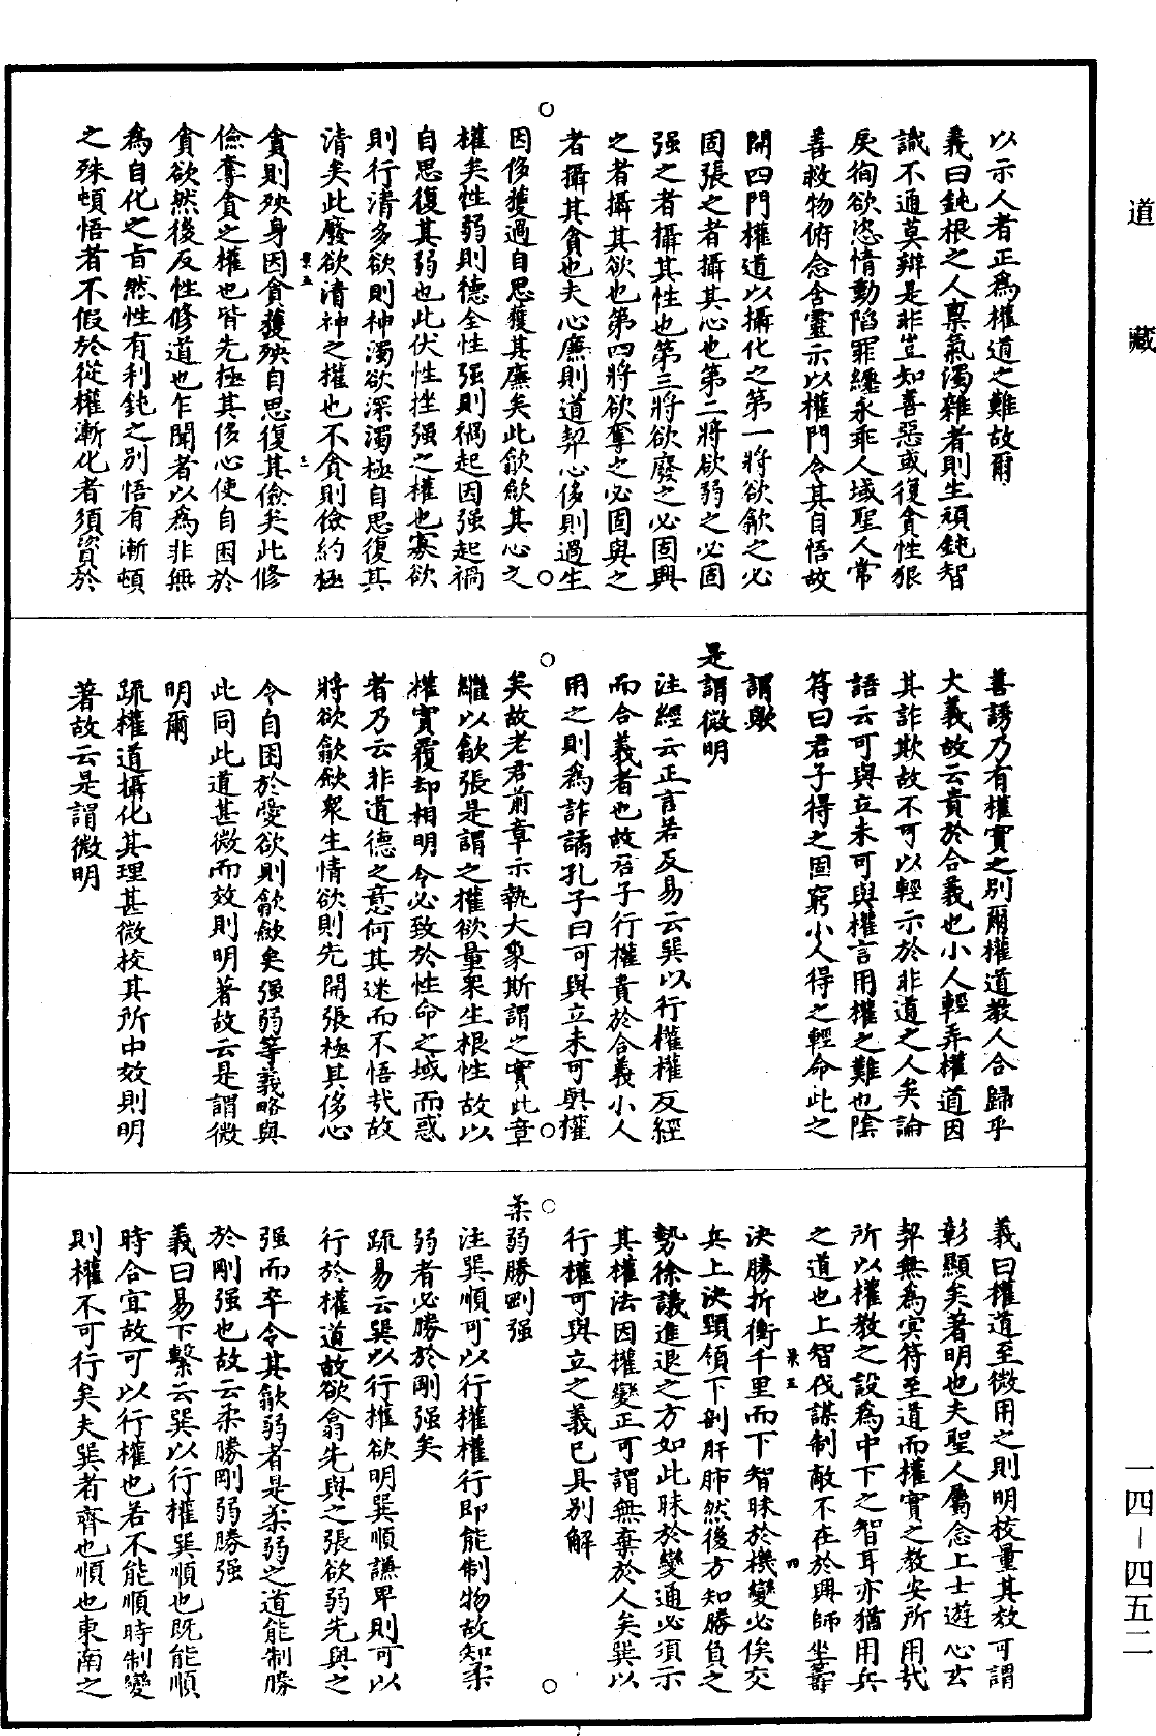 道藏
以示人者正爲權道之難故爾
義曰鈍根之人稟氣濁雜者則生頑鈍智
識不通莫辨是非豈知善惡或復貪性狠
戾徇欲恣情動陷罪纏永乖人域聖人常
善救物俯念含靈示以權門令其自悟故
開四門權道以攝化之第一將欲歙之必
固張之者攝其心也第二將欲弱之必固
强之者攝其性也第三將欲廢之必固興
之者攝其欲也第四將欲奪之必固與之
者攝其貪也夫心廉則道契心侈則過生
因侈獲過自思獲其廉矣此歙歛其心之
權矣性弱則德全性强則禍起因强起禍
自思復其弱也此伏性挫强之權也寡欲
則行清多欲則神濁欲深濁極自思復其
清矣此廢欲清神之權也不貪則儉約極
貪則殃身因貪獲殃自思復其儉矣此修
儉奪貪之權也皆先極其侈心使自困於
貪欲然後反性修道也乍聞者以爲非無
爲自化之旨然性有利鈍之別悟有漸頓
之殊頓悟者不假於從權漸化者須資於
善誘乃有權實之別爾權道教人合歸乎
大義故云貴於合義也小人輕弄權道因
其詐欺故不可以輕示於非道之人矣論
語云可與立未可與權言用權之難也陰
符曰君子得之固窮小人得之輕命此之
謂歟
是謂微明
注經云正言若反易云巽以行權權反經
而合義者也故君子行權貴於合義小人
用之則爲詐譎孔子曰可與立未可與權
矣故老君前章示執大象斯謂之實此章
繼以歙張是謂之權欲量衆生根性故以
權實覆却相明令必致於性命之域而惑
者乃云非道德之意何其迷而不悟哉故
將欲歙歛衆生情欲則先開張極其侈心
令自困於愛欲則歙歛矣强弱等義略與
此同此道甚微而效則明著故云是謂微
明爾
疏權道攝化其理甚微校其所中效則明
著故云是謂微明
義曰權道至微用之則明校量其效可謂
彰顯矣著明也夫聖人屬念上士遊心玄
契無爲冥符至道而權實之教安所用哉
所以權教之設爲中下之智耳亦猶用兵
之道也上智伐謀制敵不在於興師坐籌
決勝折衝千里而下智昧於機變必俟交
兵上決頸領下剖肝肺然後方知勝負之
勢徐議進退之方如此昧於變通必須示
其權法因權變正可謂無棄於人矣巽以
行權可與立之義已具別解
柔弱勝剛强
注巽順可以行權權行即能制物故知柔
弱者必勝於剛强矣
疏易云巽以行權欲明巽順謙卑則可以
行於權道故欲翕先與之張欲弱先與之
强而卒令其歙弱者是柔弱之道能制勝
於剛强也故云柔勝剛弱勝强
義曰易下繫云巽以行權巽順也既能順
時合宜故可以行權也若不能順時制變
則權不可行矣夫巽者齊也順也東南之
一四－四五二